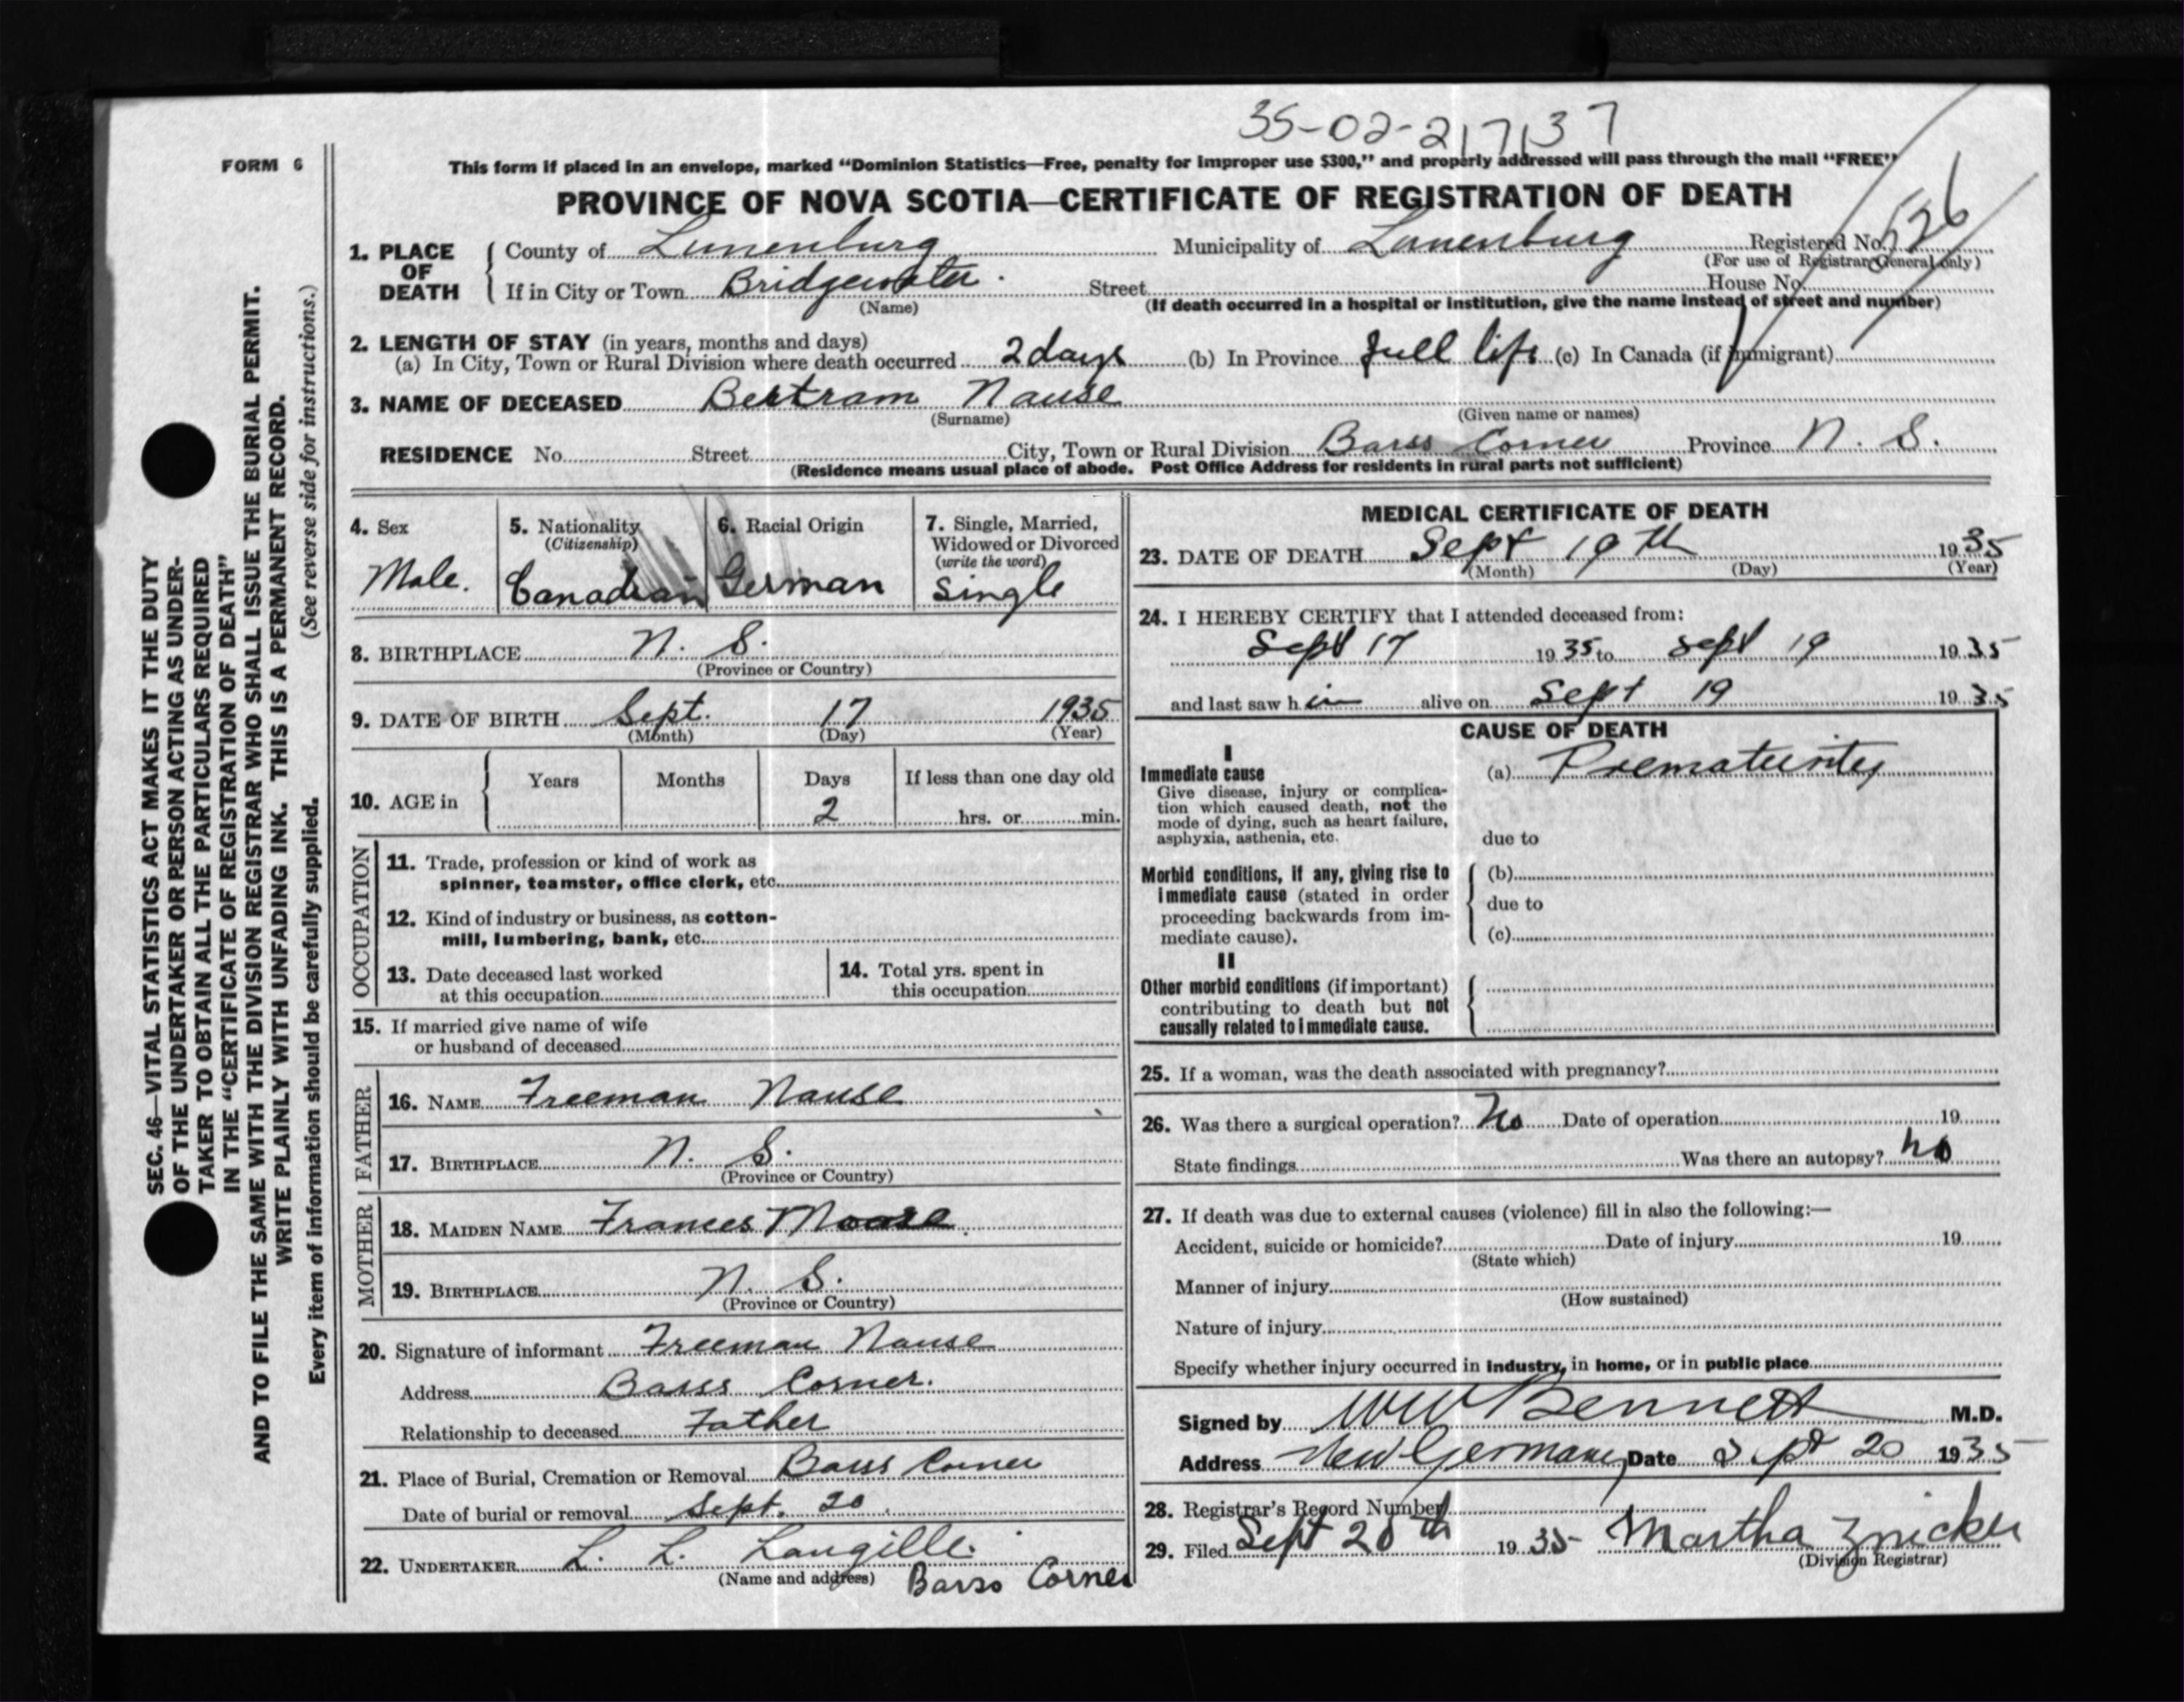 35-02-217137
FORM 6
This form if placed in an envelope, marked "Dominion Statistics—Free, penalty for improper use $300," and properly addressed will pass through the mail "FREE"
PROVINCE OF NOVA SCOTIA—CERTIFICATE OF REGISTRATION OF DEATH
1. PLACE OF DEATH { County of Lunenburg Municipality of Lunenburg Registered No. 526
(For use of Registrar General only)
If in City or Town Bridgewater. Street House No.
(Name) (If death occurred in a hospital or institution, give the name instead of street and number)
2. LENGTH OF STAY (in years, months and days)
(a) In City, Town or Rural Division where death occurred 2 days (b) In Province full life (c) In Canada (if immigrant)
3. NAME OF DECEASED Bertram Nause
(Surname) (Given name or names)
RESIDENCE No. Street City, Town or Rural Division Barss Corner Province N. S.
(Residence means usual place of abode. Post Office Address for residents in rural parts not sufficient)
4. Sex Male.
5. Nationality (Citizenship) Canadian
6. Racial Origin German
7. Single, Married, Widowed or Divorced (write the word) Single
8. BIRTHPLACE N. S.
(Province or Country)
9. DATE OF BIRTH Sept. 17 1935
(Month) (Day) (Year)
10. AGE in { Years Months Days If less than one day old
2 hrs. or min.
OCCUPATION
11. Trade, profession or kind of work as
spinner, teamster, office clerk, etc.
12. Kind of industry or business, as cotton-
mill, lumbering, bank, etc.
13. Date deceased last worked
at this occupation
14. Total yrs. spent in
this occupation
15. If married give name of wife
or husband of deceased
FATHER
16. NAME Freeman Nause
17. BIRTHPLACE N. S.
(Province or Country)
MOTHER
18. MAIDEN NAME Frances
19. BIRTHPLACE N. S.
(Province or Country)
20. Signature of informant Freeman Nause
Address Barss Corner.
Relationship to deceased Father
21. Place of Burial, Cremation or Removal Barss Corner
Date of burial or removal Sept. 20.
22. UNDERTAKER L. L. Langille.
(Name and address) Barss Corner
MEDICAL CERTIFICATE OF DEATH
23. DATE OF DEATH Sept 19th 1935
(Month) (Day) (Year)
24. I HEREBY CERTIFY that I attended deceased from:
Sept 17 1935 to Sept 19 1935
and last saw him alive on Sept 19 1935
CAUSE OF DEATH
I
Immediate cause
Give disease, injury or complica-
tion which caused death, not the
mode of dying, such as heart failure,
asphyxia, asthenia, etc.
(a) Prematurity
due to
Morbid conditions, if any, giving rise to
immediate cause (stated in order
proceeding backwards from im-
mediate cause).
(b)
due to
(c)
II
Other morbid conditions (if important)
contributing to death but not
causally related to immediate cause.
25. If a woman, was the death associated with pregnancy?
26. Was there a surgical operation? No Date of operation 19
State findings Was there an autopsy? no
27. If death was due to external causes (violence) fill in also the following:—
Accident, suicide or homicide? Date of injury 19
(State which)
Manner of injury
(How sustained)
Nature of injury
Specify whether injury occurred in industry, in home, or in public place
Signed by WW Bennett M.D.
Address New Germany Date Sept 20 1935
28. Registrar's Record Number
29. Filed Sept 20th 1935 Martha Zwicker
(Division Registrar)
SEC. 46—VITAL STATISTICS ACT MAKES IT THE DUTY
OF THE UNDERTAKER OR PERSON ACTING AS UNDER-
TAKER TO OBTAIN ALL THE PARTICULARS REQUIRED
IN THE "CERTIFICATE OF REGISTRATION OF DEATH"
AND TO FILE THE SAME WITH THE DIVISION REGISTRAR WHO SHALL ISSUE THE BURIAL PERMIT.
WRITE PLAINLY WITH UNFADING INK. THIS IS A PERMANENT RECORD.
Every item of information should be carefully supplied. (See reverse side for instructions.)